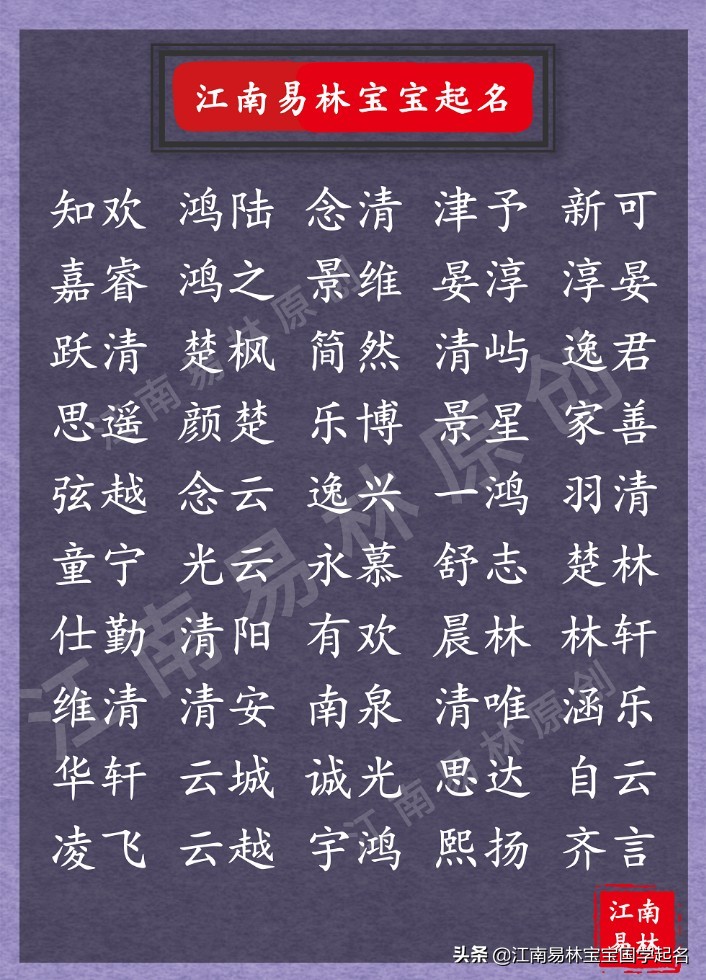 江南易林宝宝起名
知欢 鸿陆 念清 津予 新可
嘉睿 鸿之 景维 晏淳 淳晏
跃清 楚枫 简然 清屿 逸君
思遥 颜楚 乐博 景星 家善
弦越 念云 逸兴 一鸿 羽清
童宁 光云 永慕 舒志 楚林
仕勤 清阳 有欢 晨林 林轩
维清 清安 南泉 清唯 涵乐
华轩 云城 诚光 思达 自云
凌飞 云越 宇鸿 熙扬 齐言
江南易林原创
江南易林原创
江南易林原创
江南
易林
头条 @江南易林宝宝国学起名